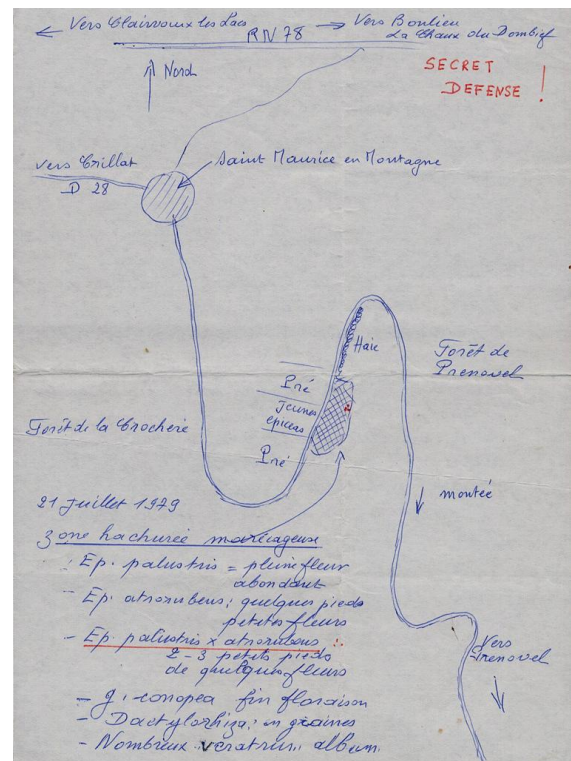 ← Vers Clairvaux les Lacs
RN 78
→ Vers Bonlieu
La Chaux du Dombief
SECRET
DEFENSE !
Nord
Vers Crillat
D 28
Saint Maurice en Montagne
Haie
Forêt de
Prenovel
Pré
Jeunes
epiceas
Pré
Forêt de la Crochère
montée
21 Juillet 1979
Zone hachurée marécageuse
- Ep. palustris = pleine fleur
abondant
- Ep. atrorubens; quelques pieds
petites fleurs
- Ep. palustris x atrorubens
2-3 petits pieds
de quelques fleurs
- g. conopea fin floraison
- Dactylorhiza: en graines
- Nombreux veratrum album
Vers
Prenovel